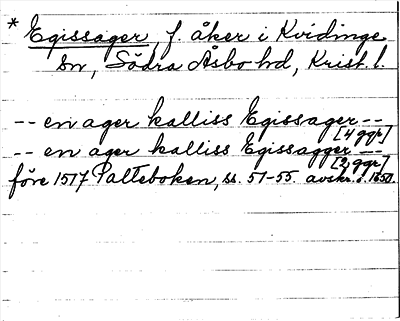 * Egissager, f. åker i Kvidinge
sn, Södra Åsbo hd, Krist. l.
-- en ager kalliss Egissager --
[4 ggr]
-- en ager kalliss Egissagger --
[2 ggr]
före 1577 Palteboken, ss. 51-55. avskr. f. 1650.